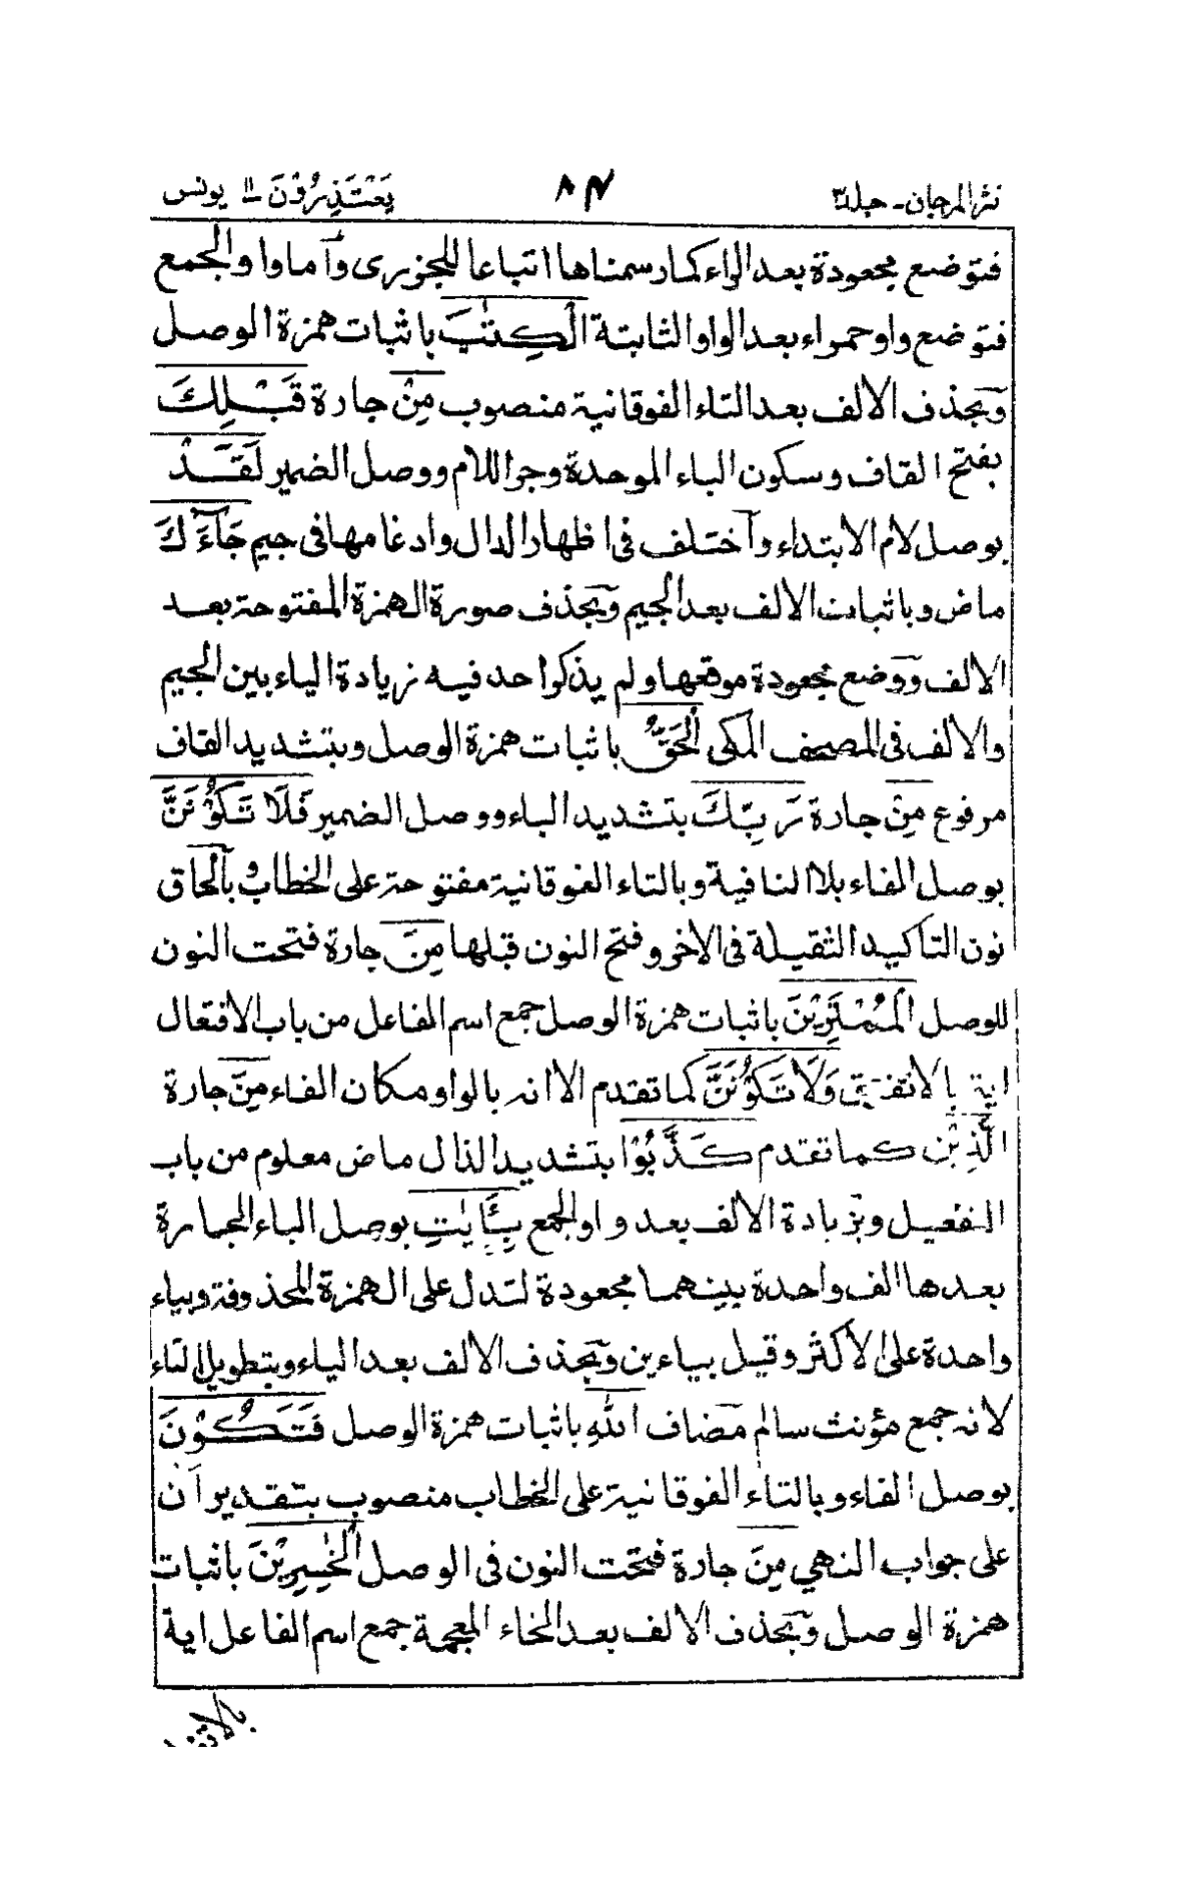 نثر المرجان - جلد ٣ ٨٤ يَعْتَذِرُوْنَ ١١ يونس
فتوضع مجعودة بعد الراء كما رسمناها اتباعا للجزرى وآما واو الجمع
فتوضع واو حمراء بعد الواو الثابتة الْكِتٰبَ باثبات همزة الوصل
وبحذف الالف بعد التاء الفوقانية منصوب مِنْ جارة قَبْلِكَ
بفتح القاف وسكون الباء الموحدة وجر اللام ووصل الضمير لَقَدْ
بوصل لام الابتداء وآختلف فى اظهار الدال وادغامها فى جيم جَآءَكَ
ماض وباثبات الالف بعد الجيم وبحذف صورة الهمزة المفتوحة بعد
الالف ووضع مجعودة موقعها ولم يذكر احد فيه زيادة الياء بين الجيم
والالف فى المصحف المكى الْحَقُّ باثبات همزة الوصل وبتشديد القاف
مرفوع مِنْ جارة رَبِّكَ بتشديد الباء ووصل الضمير فَلَا تَكُوْنَنَّ
بوصل الفاء بلا النافية وبالتاء الفوقانية مفتوحة على الخطاب وبالحاق
نون التاكيد الثقيلة فى الاخر وفتح النون قبلها مِنَ جارة فتحت النون
للوصل الْمُمْتَرِيْنَ باثبات همزة الوصل جمع اسم الفاعل من باب الافتعال
اية بالاتفاق وَلَا تَكُوْنَنَّ كما تقدم الا انه بالواو مكان الفاء مِنَ جارة
الَّذِيْنَ كما تقدم كَذَّبُوْا بتشديد الذال ماض معلوم من باب
التفعيل وبزيادة الالف بعد واو الجمع بِـَٔايٰتِ بوصل الباء الجارة
بعدها الف واحدة بينهما مجعودة لتدل على الهمزة المحذوفة وبياء
واحدة على الاكثر وقيل بياءين وبحذف الالف بعد الياء وبتطويل التاء
لانه جمع مؤنث سالم مضاف اللهِ باثبات همزة الوصل فَتَكُوْنَ
بوصل الفاء وبالتاء الفوقانية على الخطاب منصوب بتقدير ان
على جواب النهي مِنَ جارة فتحت النون فى الوصل الْخٰسِرِيْنَ باثبات
همزة الوصل وبحذف الالف بعد الخاء المعجمة جمع اسم الفاعل اية